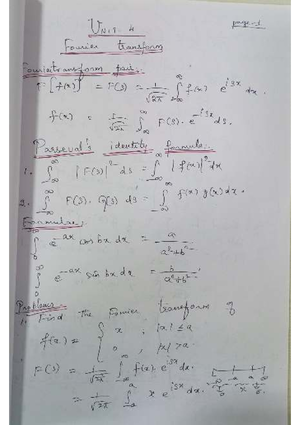 UNIT-4 page-1
Fourier transform
Fourier transform pair:-
F[f(x)] = F(s) = 1/√2π ∫_{-∞}^{∞} f(x) e^{isx} dx.
f(x) = 1/√2π ∫_{-∞}^{∞} F(s). e^{-isx} ds.
Parseval's identity formula:-
1. ∫_{-∞}^{∞} |F(s)|² ds = ∫_{-∞}^{∞} |f(x)|² dx
2. ∫_{-∞}^{∞} F(s). G(s) ds = ∫_{-∞}^{∞} f(x) g(x) dx.
Formulae:
∫_0^∞ e^{-ax} cos bx dx = a/(a²+b²)
∫_0^∞ e^{-ax} sin bx dx = b/(a²+b²)
Problems:
1. Find the Fourier transform of
f(x) = { x ; |x| ≤ a
0 ; |x| > a
F(s) = 1/√2π ∫_{-∞}^{∞} f(x) e^{isx} dx.
= 1/√2π ∫_{-a}^{a} x e^{isx} dx.